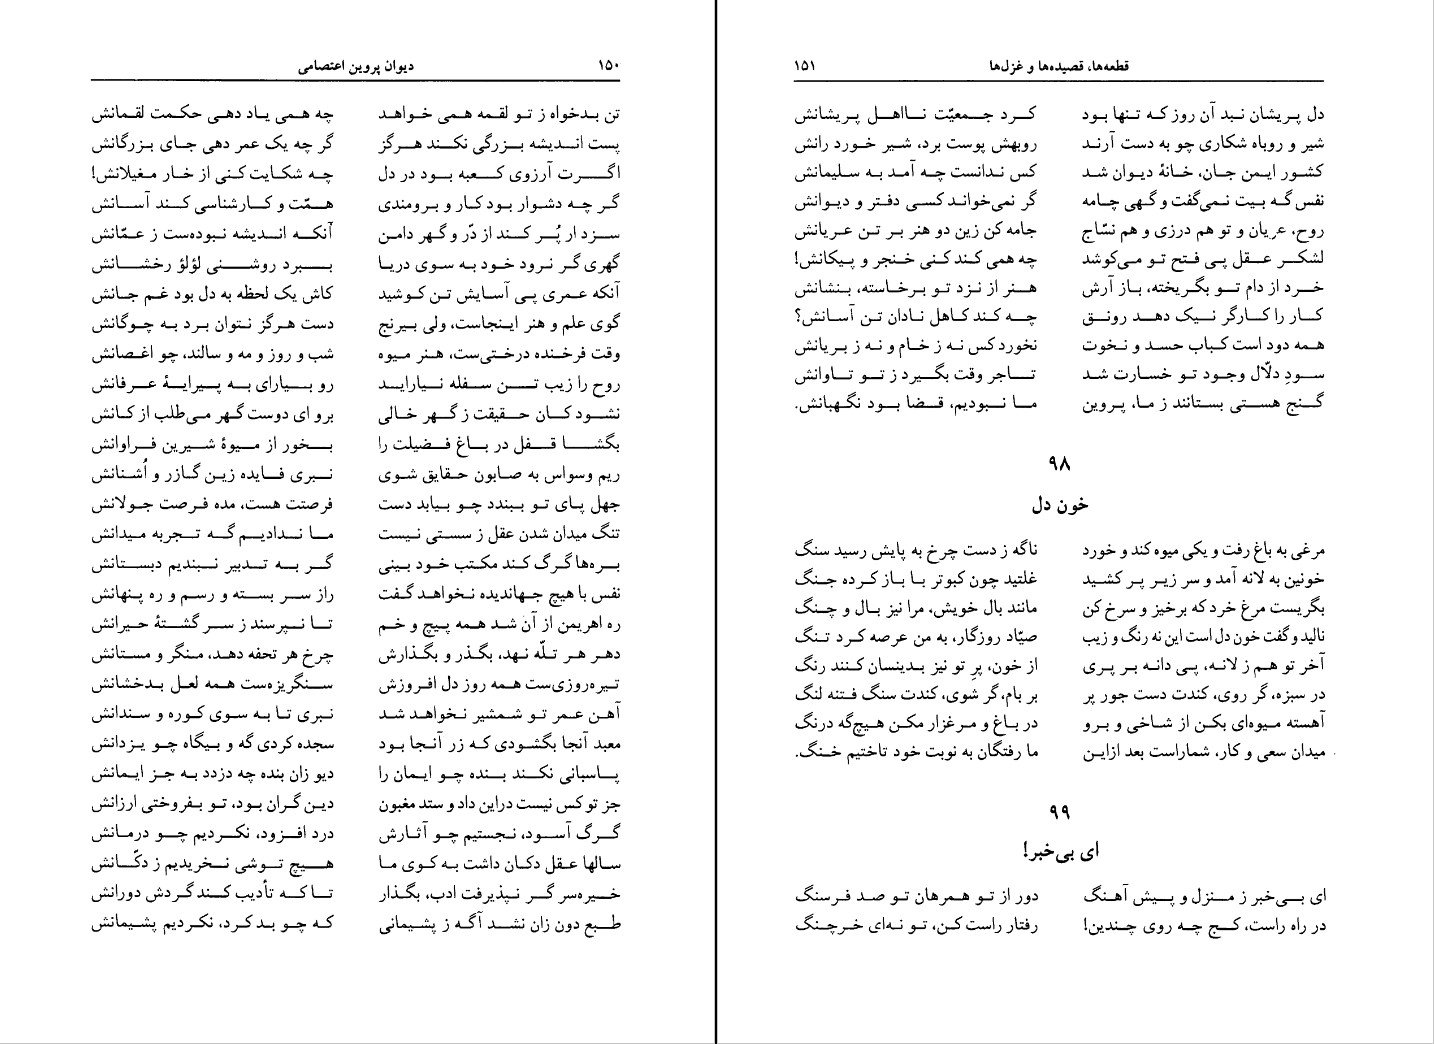 ۱۵۰ دیوان پروین اعتصامی
تن بدخواه ز تو لقمه همی خواهد چه همی یاد دهی حکمت لقمانش
پست اندیشه بزرگی نکند هرگز گر چه یک عمر دهی جای بزرگانش
اگرت آرزوی کعبه بود در دل چه شکایت کنی از خار مغیلانش!
گر چه دشوار بود کار و برومندی همّت و کارشناسی کند آسانش
سزد ار پُر کند از دّر و گهر دامن آنکه اندیشه نبوده‌ست ز عمّانش
گهری گر نرود خود به سوی دریا ببرد روشنی لؤلؤ رخشانش
آنکه عمری پی آسایش تن کوشید کاش یک لحظه به دل بود غم جانش
گوی علم و هنر اینجاست، ولی بی‌رنج دست هرگز نتوان برد به چوگانش
وقت فرخنده درختی‌ست، هنر میوه شب و روز و مه و سالند، چو اغصانش
روح را زیب تن سفله نیارایند رو بیارای به پیرایهٔ عرفانش
نشود کان حقیقت ز گهر خالی برو ای دوست گهر می‌طلب از کانش
بگشا قفل در باغ فضیلت را بخور از میوهٔ شیرین فراوانش
ریم وسواس به صابون حقایق شوی نبری فایده زین گازر و اُشنانش
جهل پای تو ببندد چو بیابد دست فرصتت هست، مده فرصت جولانش
تنگ میدان شدن عقل ز سستی نیست ما ندادیم گه تجربه میدانش
بره‌ها گرگ کند مکتب خود بینی گر به تدبیر نبندیم دبستانش
نفس با هیچ جهاندیده نخواهد گفت راز سر بسته و رسم و ره پنهانش
ره اهریمن از آن شد همه پیچ و خم تا نپرسند ز سر گشتهٔ حیرانش
دهر هر تلّه نهد، بگذر و بگذارش چرخ هر تحفه دهد، منگر و مستانش
تیره‌روزی‌ست همه روز دل افروزش سنگریزه‌ست همه لعل بدخشانش
آهن عمر تو شمشیر نخواهد شد نبری تا به سوی کوره و سندانش
معبد آنجا بگشودی که زر آنجا بود سجده کردی گه و بیگاه چو یزدانش
پاسبانی نکند بنده چو ایمان را دیو زان بنده چه دزدد به جز ایمانش
جز تو کس نیست دراین داد و ستد مغبون دین گران بود، تو بفروختی ارزانش
گرگ آسود، نجستیم چو آثارش درد افزود، نکردیم چو درمانش
سالها عقل دکان داشت به کوی ما هیچ توشی نخریدیم ز دکّانش
خیره‌سر گر نپذیرفت ادب، بگذار تا که تأدیب کند گردش دورانش
طبع دون زان نشد آگه ز پشیمانی که چو بد کرد، نکردیم پشیمانش
قطعه‌ها، قصیده‌ها و غزل‌ها ۱۵۱
دل پریشان نبد آن روز که تنها بود کرد جمعیّت نااهل پریشانش
شیر و روباه شکاری چو به دست آرند روبهش پوست برد، شیر خورد رانش
کشور ایمن جان، خانهٔ دیوان شد کس ندانست چه آمد به سلیمانش
نفس گه بیت نمی‌گفت و گهی چامه گر نمی‌خواند کسی دفتر و دیوانش
روح، عریان و تو هم درزی و هم نسّاج جامه کن زین دو هنر بر تن عریانش
لشکر عقل پی فتح تو می‌کوشد چه همی کند کنی خنجر و پیکانش!
خرد از دام تو بگریخته، باز آرش هنر از نزد تو برخاسته، بنشانش
کار را کارگر نیک دهد رونق چه کند کاهل نادان تن آسانش؟
همه دود است کباب حسد و نخوت نخورد کس نه ز خام و نه ز بریانش
سودِ دلّال وجود تو خسارت شد تاجر وقت بگیرد ز تو تاوانش
گنج هستی بستانند ز ما، پروین ما نبودیم، قضا بود نگهبانش.
۹۸
خون دل
مرغی به باغ رفت و یکی میوه کند و خورد ناگه ز دست چرخ به پایش رسید سنگ
خونین به لانه آمد و سر زیر پر کشید غلتید چون کبوتر با باز کرده جنگ
بگریست مرغ خرد که برخیز و سرخ کن مانند بال خویش، مرا نیز بال و چنگ
نالید و گفت خون دل است این نه رنگ و زیب صیّاد روزگار، به من عرصه کرد تنگ
آخر تو هم ز لانه، پی دانه بر پری از خون، پرِ تو نیز بدینسان کنند رنگ
در سبزه، گر روی، کندت دست جور پر بر بام، گر شوی، کندت سنگ فتنه لنگ
آهسته میوه‌ای بکن از شاخی و برو در باغ و مرغزار مکن هیچ‌گه درنگ
میدان سعی و کار، شماراست بعد ازاین ما رفتگان به نوبت خود تاختیم خنگ.
۹۹
ای بی‌خبر!
ای بی‌خبر ز منزل و پیش آهنگ دور از تو همرهان تو صد فرسنگ
در راه راست، کج چه روی چندین! رفتار راست کن، تو نه‌ای خرچنگ